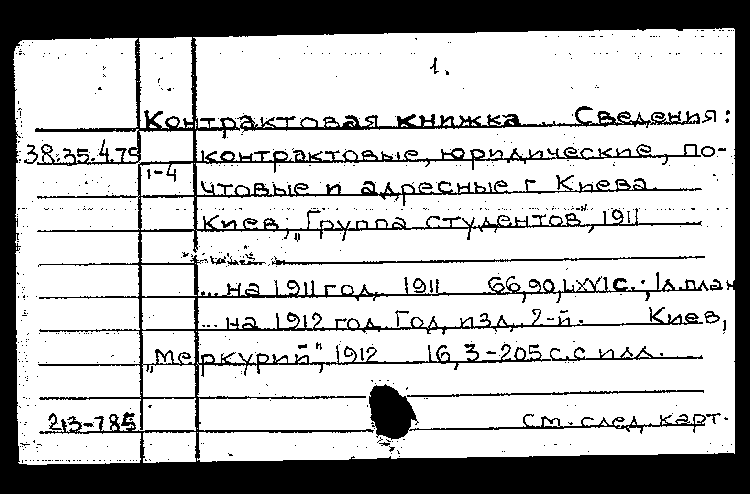 1.
Контрактовая книжка... Сведения:
38.35.4.79 контрактовые, юридические, по-
1-4 чтовые и адресные г. Киева.
Киев, „Группа студентов", 1911
... на 1911 год, 1911 66,90,LXVI с.; 1 л. план
... на 1912 год. Год. изд. 2-й. Киев,
„Меркурий", 1912 16, 3-205 с. с илл.
213-785 см. след. карт.